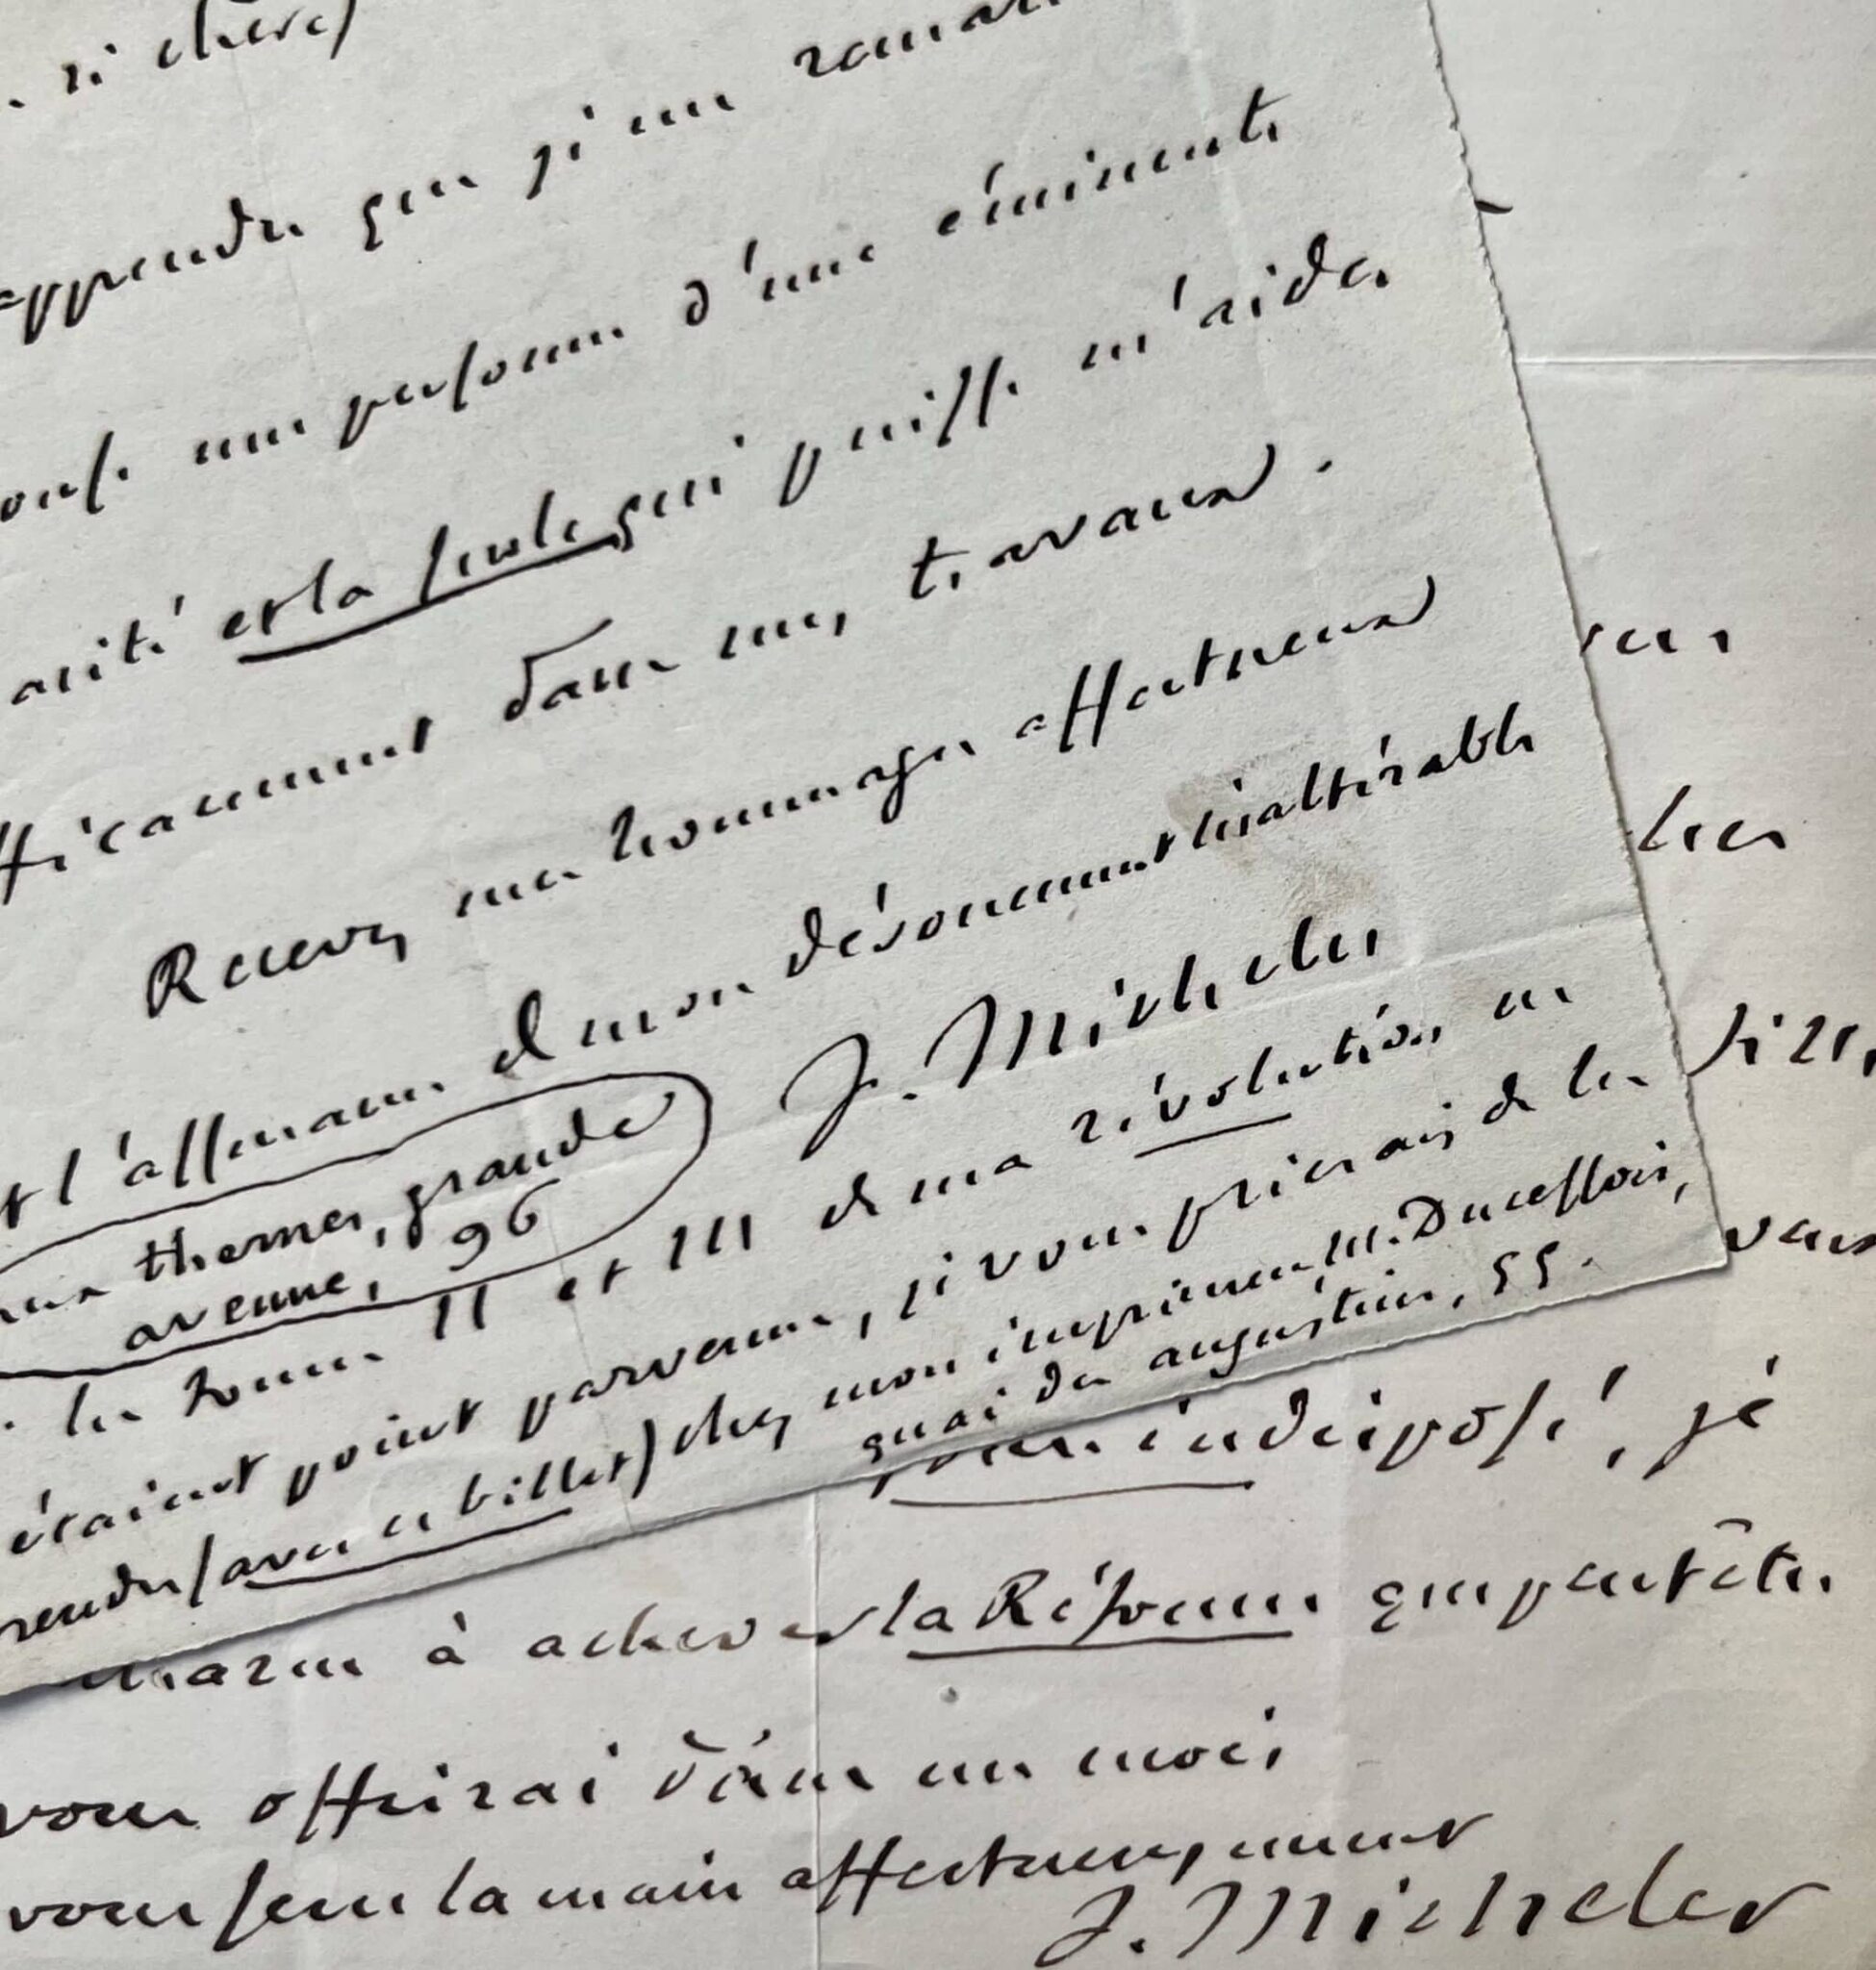 si chère
apprendre que j'ai un
une personne d'une éminente
est la seule qui puisse m'aider
efficacement dans mes travaux.
Recevez mes hommages affectueux
et l'assurance de mon dévouement inaltérable
J. Michelet
aux thernes, grande
avenue, 96
les tomes II et III de ma révolution ne
étaient point parvenus, je vous prierais de les
prendre (avec ce billet) chez mon imprimeur, M. Ducessois,
quai des augustins, 55.
indisposé, je
à achever la Réforme que peut être
vous offrirai dans un mois
vous serre la main affectueusement
J. Michelet